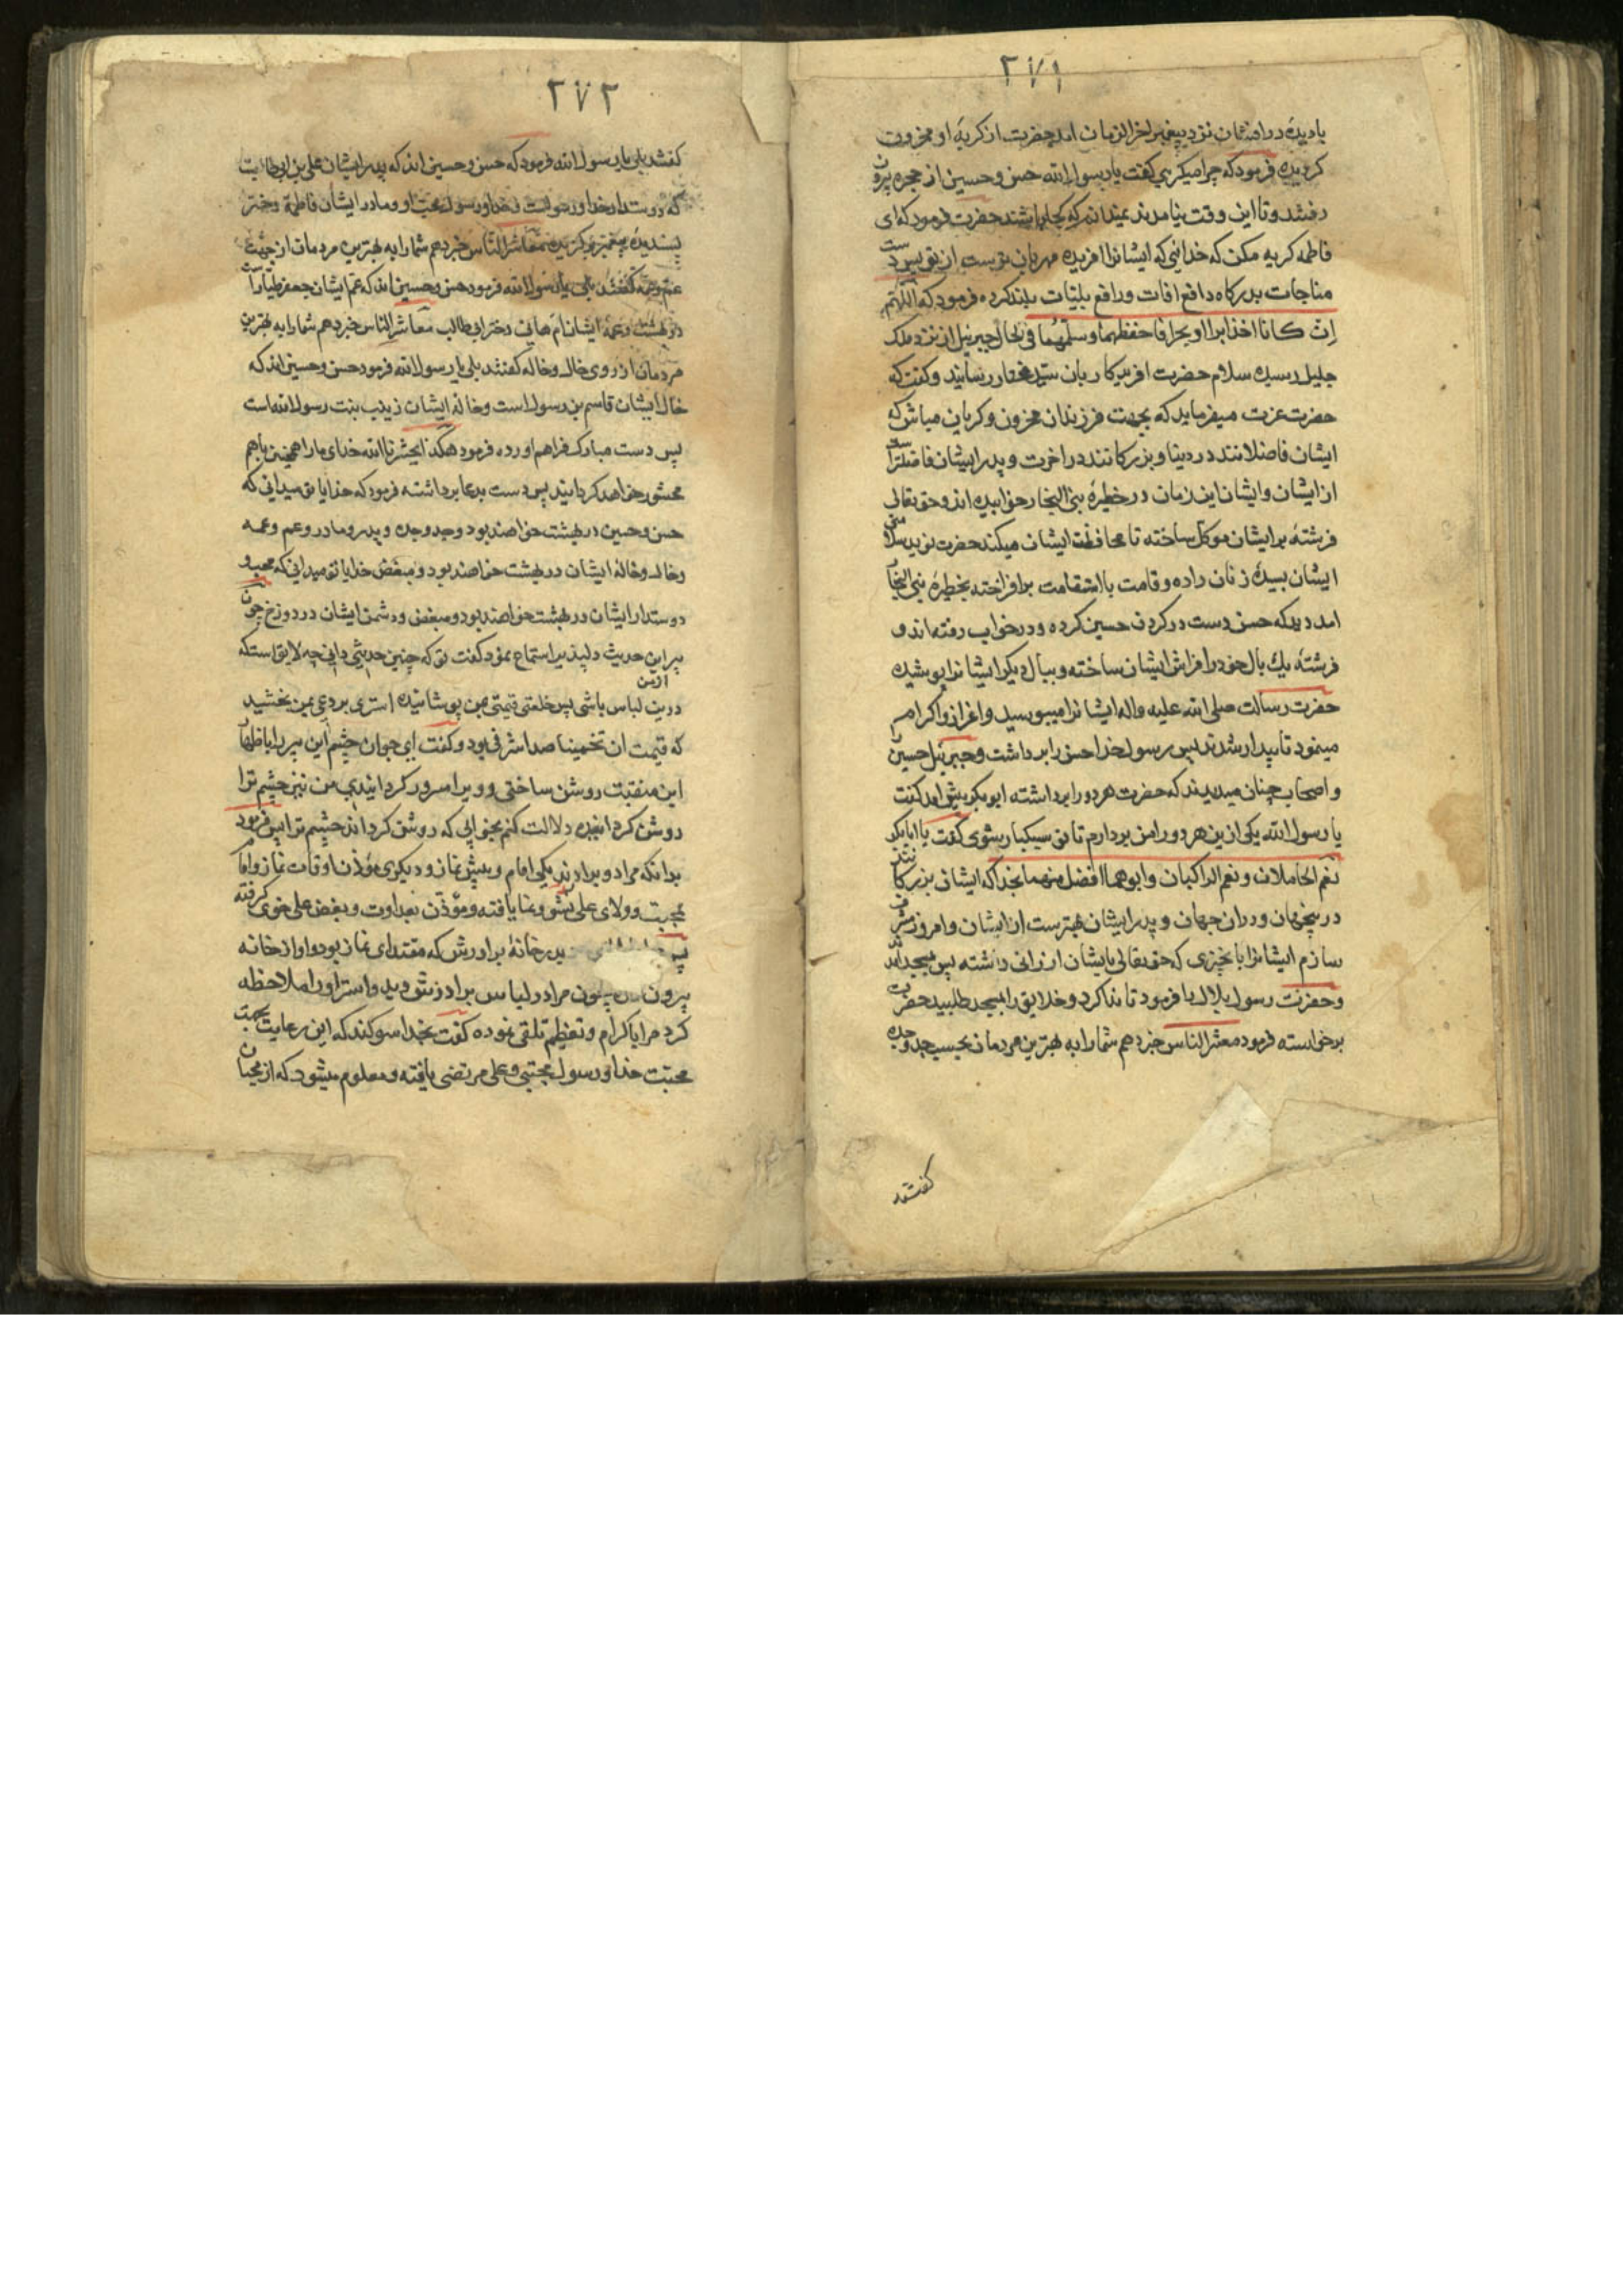 ۲۷۱
با دیدهٔ در افشان نزد پیغمبر اخر الزمان امد حضرت از کریهٔ او محزون
کردیده فرمود که چرا میکریی کفت یا رسول الله حسن و حسین از حجره بیرون
رفتند و تا این وقت نیامدند نمیدانم که کجا باشند حضرت فرمود که ای
فاطمه کریه مکن که خدائی که ایشانرا افریده مهربان ترست از تو پس دست
مناجات بدرکاه دافع افات و رافع بلیّات بلند کرده فرمود که اللّهم
اِن کانا اخذا برا او بحرا فاحفظهما و سلّمهما فی الحال جبرئیل از نزد ملک
جلیل رسیده سلام حضرت افریدکار بان سیّد مختار رسانید و کفت که
حضرت عزت میفرماید که بجهت فرزندان محزون و کریان مباش که
ایشان فاضلانند در دنیا و بزرکانند در اخرت و پدر ایشان فاضلتر است
از ایشان و ایشان این زمان در خطیرهٔ بنی النجار خوابیده اند و حق تعالی
فرشتهٔ بر ایشان موکل ساخته تا محافظت ایشان میکند حضرت نوید سلامتی
ایشان بسیدهٔ زنان داده و قامت با استقامت بر افراخته بخطیرهٔ بنی النجار
امد دید که حسن دست در کردن حسین کرده و در خواب رفته اند و
فرشته یک بال خود را فراش ایشان ساخته و ببال دیکر ایشانرا پوشیده
حضرت رسالت صلی الله علیه و اله ایشانرا میبوسید و اعزاز و اکرام
مینمود تا بیدار شدند پس رسول خدا حسن را برداشت و جبرئیل حسین را
و اصحاب چنان میدیدند که حضرت هر دو را برداشته ابوبکر پیش امد کفت
یا رسول الله یکی ازین هر دو را من بردارم تا تو سبکبار شوی کفت یا ابابکر
نعم الحاملان و نعم الراکبان و ابوهما افضل منهما بخدا که ایشان بزرکانند
درینجهان و در ان جهان و پدر ایشان بهترست از ایشان و امروز مشرف
سازم ایشانرا بانچیزی که حق تعالی بایشان ارزانی داشته پس بمسجد آمد
و حضرت رسول بلال را فرمود تا ندا کرد و خلایق را بمسجد طلبید حضرت
برخواسته فرمود معشر الناس خبر دهم شما را به بهترین مردمان بحسب جد و جده
کفتند
۲۷۲
کفتند بلی یا رسول الله فرمود که حسن و حسین اند که پدر ایشان علی بن ابی طالبست
که دوستدار خدا و رسولست و خدا و رسول محب او و مادر ایشان فاطمه دختر
پسندیدهٔ پیغمبر برکزیده معاشر الناس خبر دهم شما را به بهترین مردمان از جهت
عم و عمه کفتند بلی یا رسول الله فرمود حسن و حسین اند که عم ایشان جعفر طیّار است
در بهشت و عمهٔ ایشان ام هانی دختر ابی طالب معاشر الناس خبر دهم شما را به بهترین
مردمان از روی خال و خاله کفتند بلی یا رسول الله فرمود حسن و حسین اند که
خال ایشان قاسم بن رسول است و خالهٔ ایشان زینب بنت رسول الله است
پس دست مبارک فراهم اورده فرمود هکذا یحشرنا الله خدای ما را همچنین باهم
محشور خواهد کردانید پس دست بدعا برداشته فرمود که خدایا تو میدانی که
حسن و حسین در بهشت خواهند بود و جد و جده و پدر و مادر و عم و عمه
و خال و خالهٔ ایشان در بهشت خواهند بود و مبغض خدایا تو میدانی که محب و
دوستدار ایشان در بهشت خواهند بود و مبغض و دشمن ایشان در دوزخ چون
پیر این حدیث دلپذیر استماع نمود کفت تو که چنین حدیثی دانی چه لایق است که
ازین
درین لباس باشی پس خلعتی قیمتی بمن پوشانیده استری بردعی بمن بخشید
که قیمت ان تخمینا صد اشرفی بود و کفت ای جوان چشم این پیر را باظهار
این منقبت روشن ساختی و ویرا مسرور کردانیدی من نیز چشم ترا
روشن کردانیده دلالت کنم بجوانی که روشن کرداند چشم ترا پس فرمود
بدانکه مرا دو برادرند یکی امام و پیش نماز و دیکری مؤذن اوقات نماز و امام
بمحبت و ولای علی نشو و نما یافته و مؤذن بعداوت و بغض علی خوی کرفته
پس در خانهٔ برادرش که مقتدای نماز بود و او از خانه
بیرون چون مرا در لباس برادرش دید و استر او را ملاحظه
کرد مرا باکرام و تعظیم تلقی نموده کفت بخدا سوکند که این رعایت بجهت
محبّت خدا و رسول مجتبی و علی مرتضی یافته و معلوم میشود که از محبان